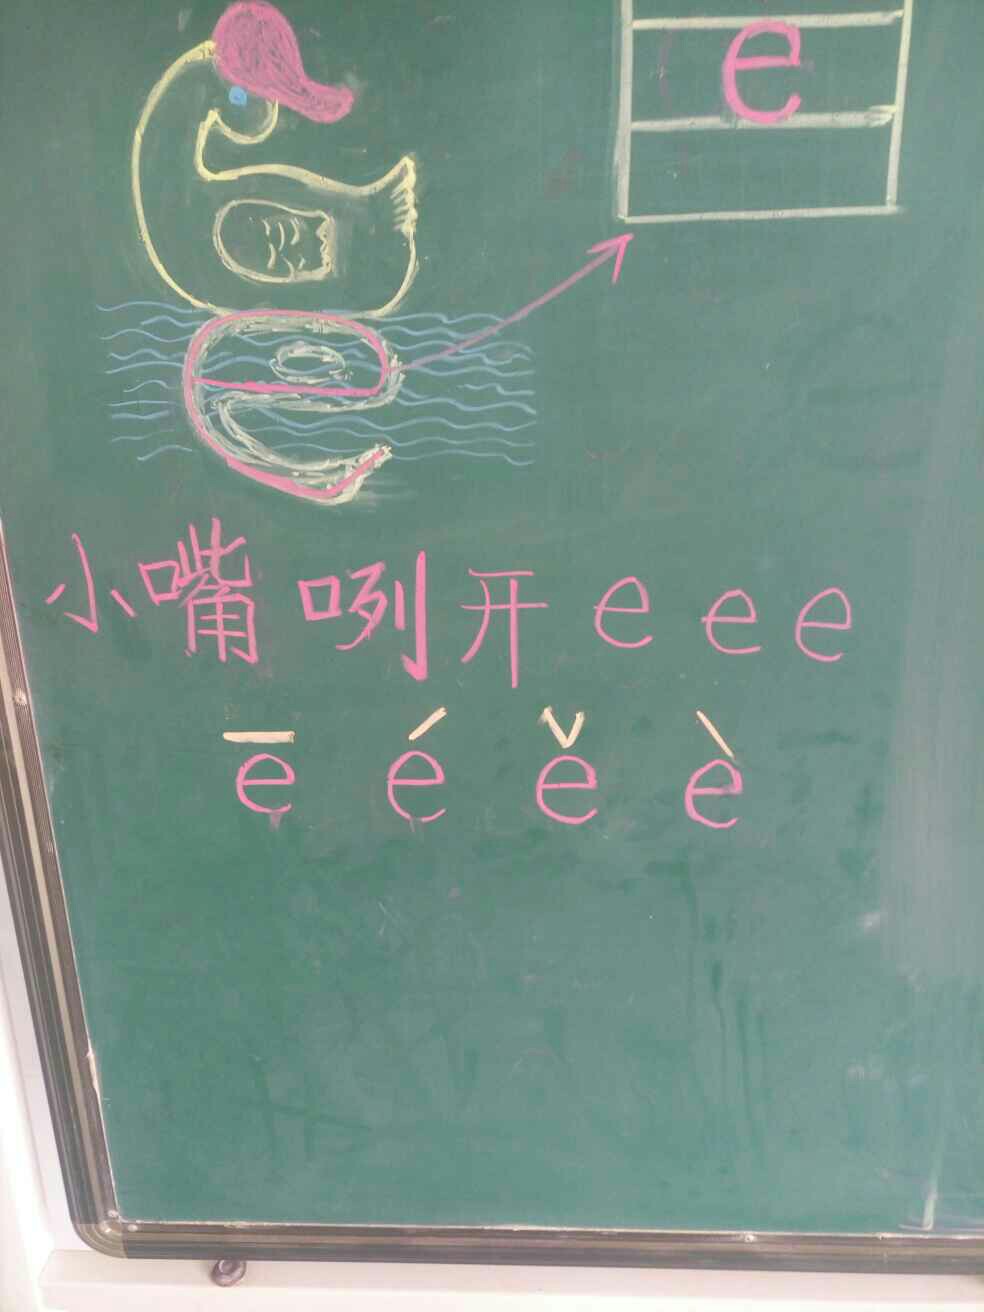 e
小嘴咧开 e e e
ē é ě è